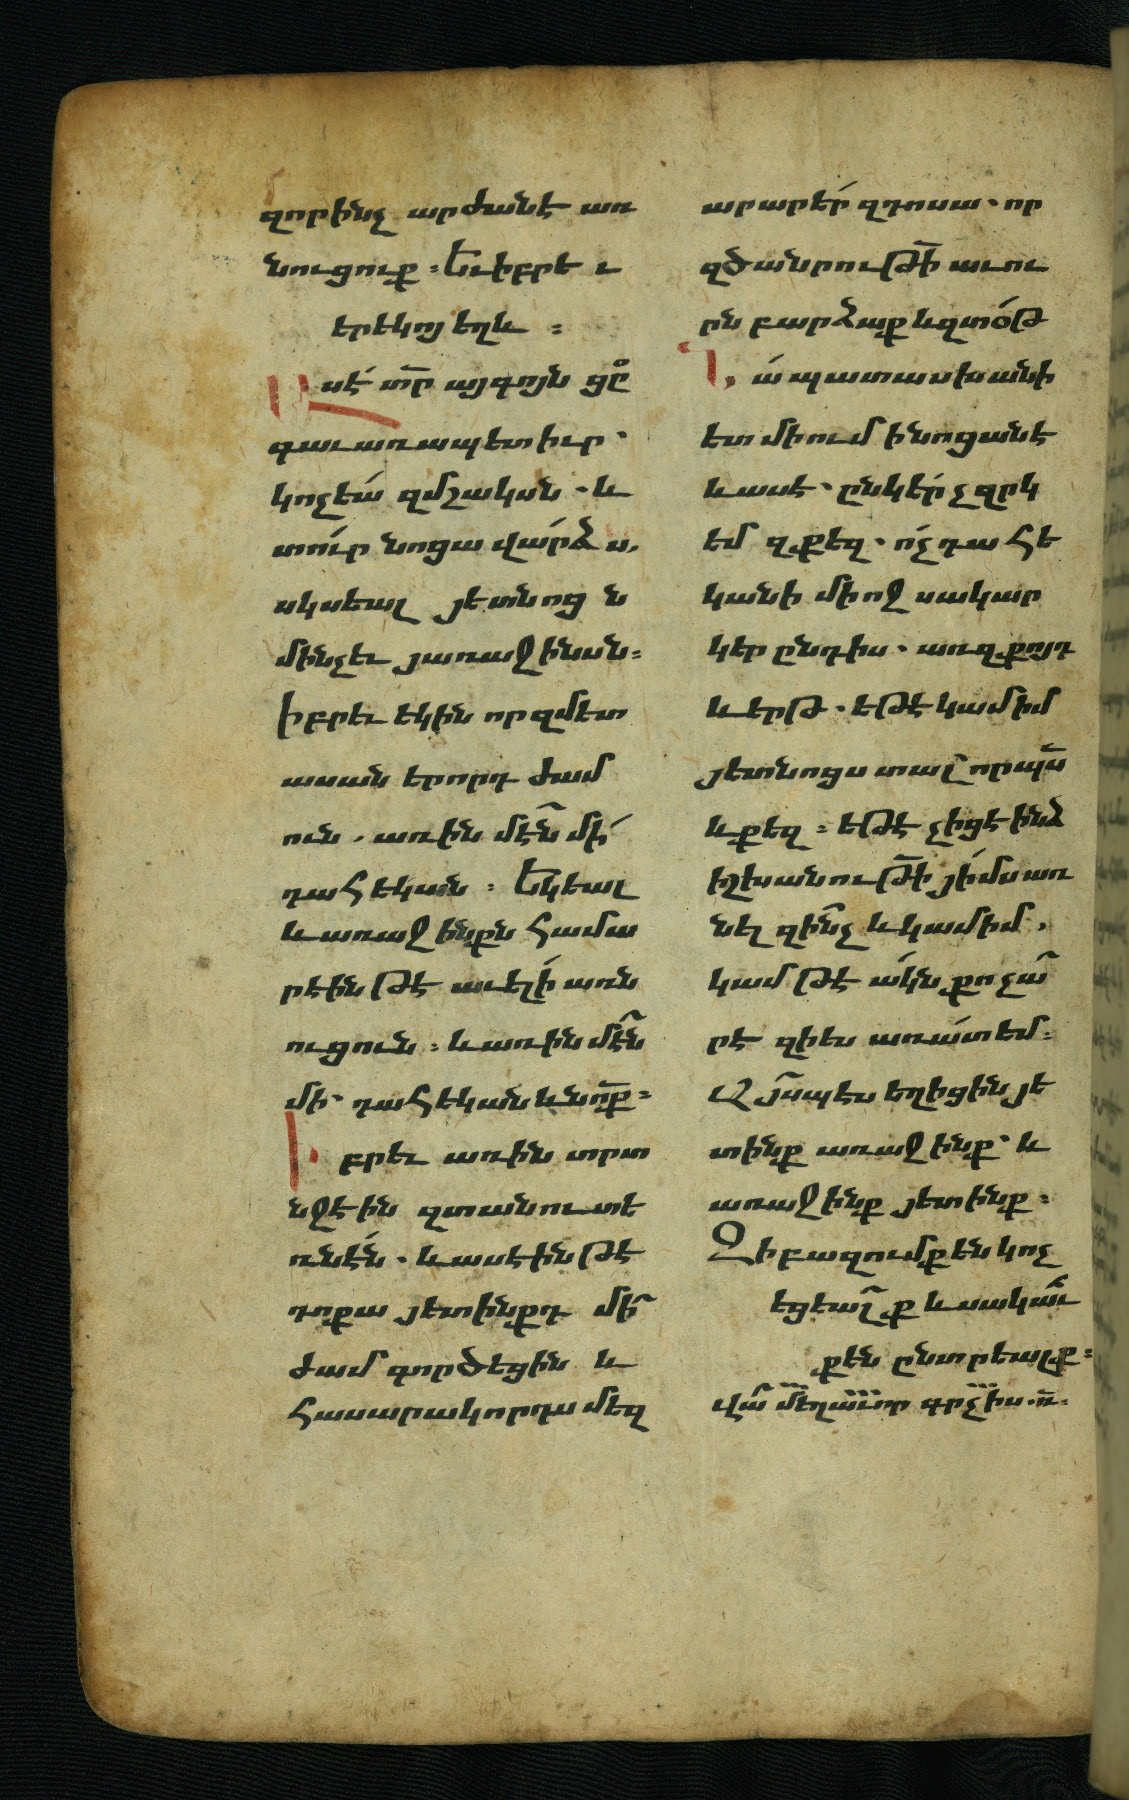 զորինչ արժանէ առ
նուցուք ։ Եւիբրե ւ
երեկոյ եղև ։
Ա սէ տր այգոյն ցը
գաւառապետ իւր ·
կոչեա զմշակսն · և
տուր նոցա վարձ ս,
սկսեալ յետնոց ն
մինչեւ յառաջ ինսն ։
Իբրեւ եկին որզմետ
ասան երորդ ժամ
ուն . առին մէն մի
դահեկան ։ Եկեալ
և առաջ ինքն համա
րեին թէ աւելի առն
ուցուն ։ և առին մէն
մի · դահեկան և նոք ։
Ի բրեւ առին տրտ
նջէին զտանուտե
ռնէն · և ասէին թէ
դոքա յետինքդ մի
ժամ գործեցին և
հասարակորդս մեզ
արարեր զդոսա · որ
զծանրութի աւու
րն բարձաք և զտօթ
Ն ա պատասխանի
ետ միում ինոցանէ
և ասէ · ընկեր չզրկ
եմ զքեզ · ոչ դահե
կանի միոջ սակար
կեր ընդիս · առ զքոյդ
և երթ · եթէ կամիմ
յետնոցս տալ որպս
և քեզ ։ եթէ չիցէ ինձ
իշխանութի յիմս առ
նել զինչ և կամիմ .
կամ թէ ակն քո չա
րէ զիես առատ եմ ։
Այսպէս եղիցին յե
տինք առաջ ինք · և
առաջ ինք յետ ինք ։
Զի բազումք են կոչ
եցեալ ք և սակաւ
քեն ընտրեալք ։
վա մեղաւոր գրչիս · ռ.